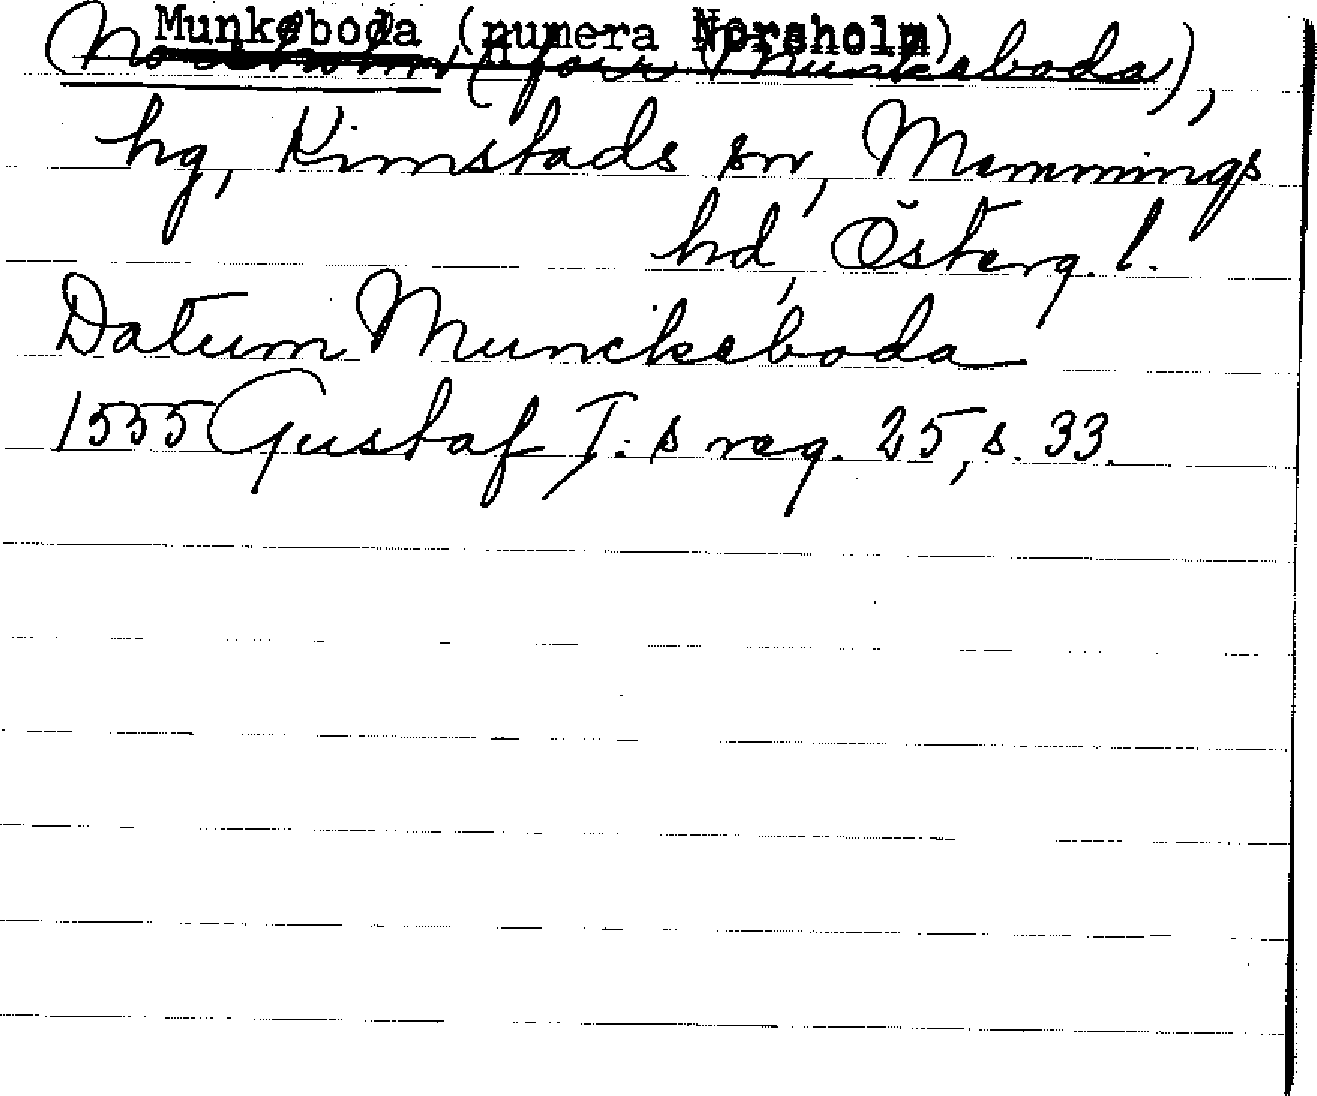 Munkeboda (numera Norsholm)
Norsholm (förr Munkeboda),
hg, Kimstads sn, Memmings
hd, Österg. l.
Datum Munckeboda
1555 Gustaf I:s reg. 25, s. 33.